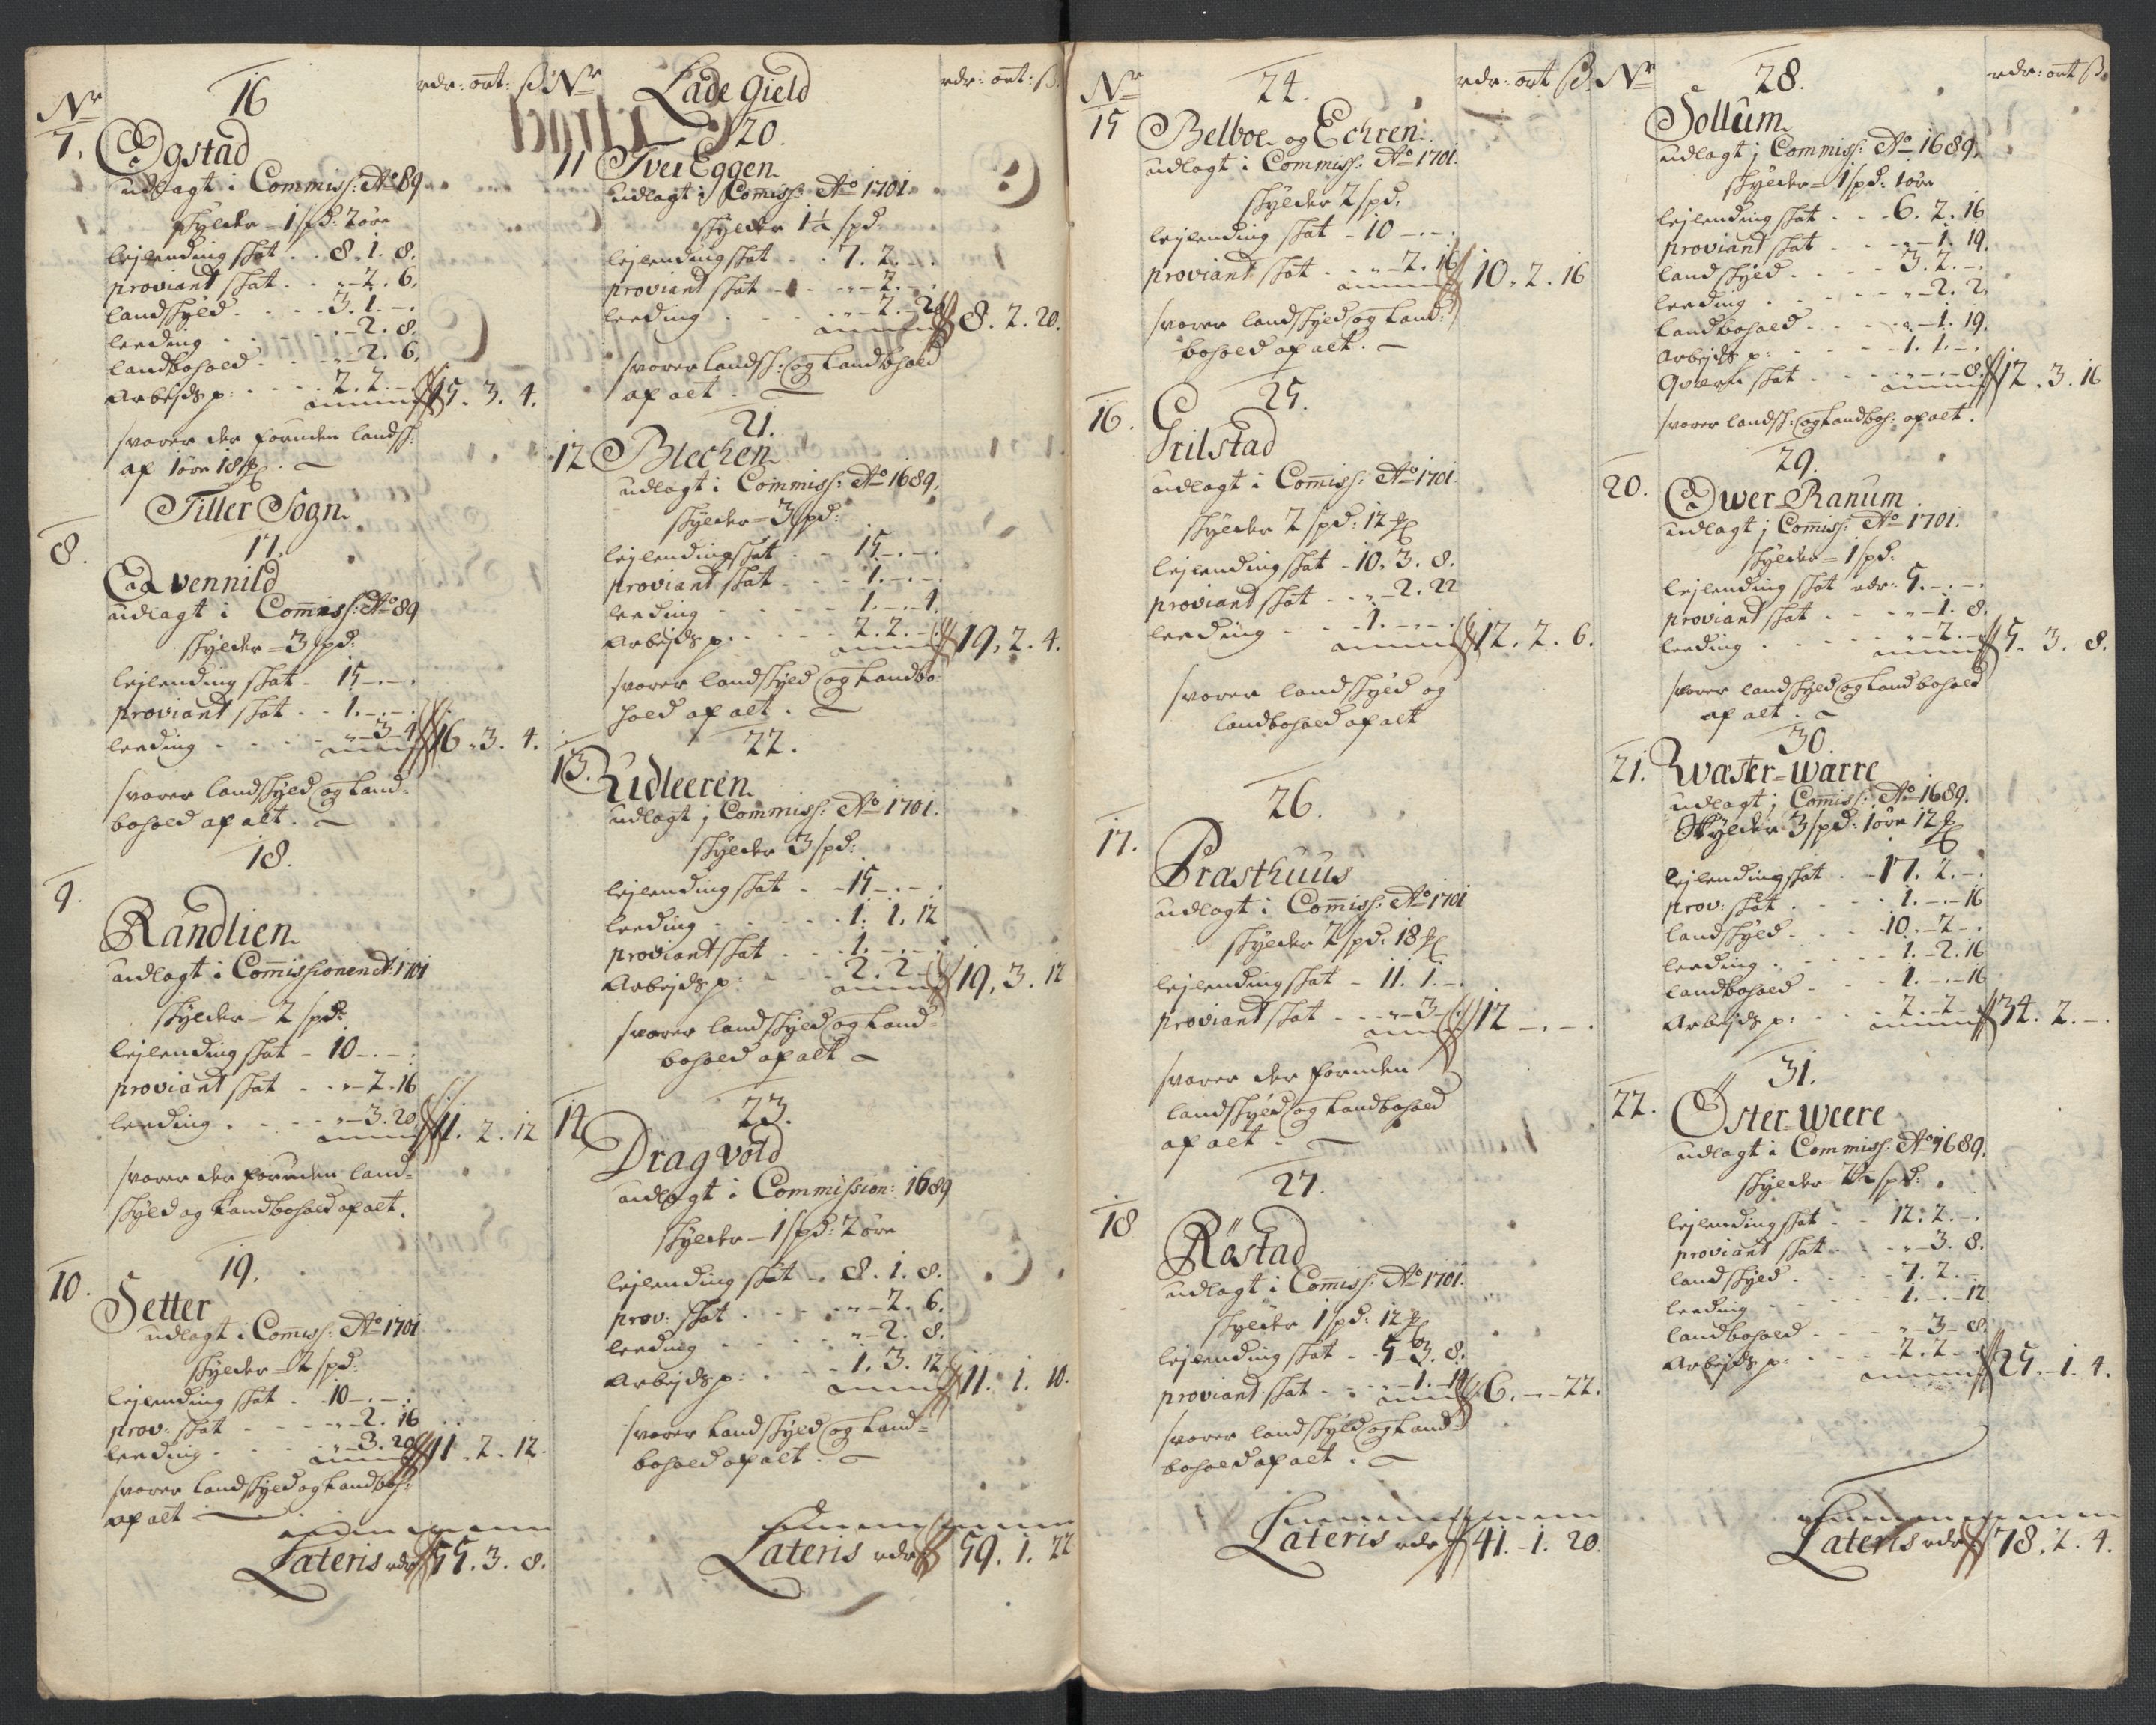 Nr
16
rdr: ort: ß
7.
Ogstad
udlagt i Commiss: Ao 89
skylder - 1 spd: 2 öre
lejlending skat . . 8. 1. 8.
proviant skat . . „ - 2. 6.
landskyld . . . . 3. 1. - .
leeding . . . . „ - 2. 8.
landbohold . . . „ - 2. 6.
Arbejds p: . . . 2. 2. - .
15. 3. 4.
svarer der foruden landsk:
af 1 öre 18
Tiller Sogn
8.
17.
Qvennild
udlagt i Commiss: Ao 89
skylder = 3 spd:
lejlending skat - 15 - . - .
proviant skat . . 1. - . - .
leeding . . . . „ - 3 - 4
16. 3. 4.
svarer landskyld og Land-
bohold af alt.
18.
9.
Randlien
udlagt i Commissionen A: 1701
skylder - 2 spd:
lejlending skat - 10 - . - .
proviant skat . . „ - 2. 16
leeding . . . . „ - 3. 20
11. 2. 12
svarer der foruden land-
skyld og Landbohold af alt.
19.
10.
Setter
udlagt i Commiss: Ao 1701
skylder - 2 spd:
lejlending skat . 10 - . - .
prov: skat . . . „ - 2. 16
leeding . . . . „ - 3. 20
11. 2. 12.
svarer landskyld og Landboh:
af alt
Lateris rdr 55. 3. 8.
Nr
Lade Gield
rdr: ort: ß.
20.
11
Iver Eggen
udlagt i Commiss: Ao 1701
skylder 1½ spd:
lejlending skat . . 7. 2. - .
proviant skat . . „ - 2. - .
leeding . . . „ - 2. 20
8. 2. 20.
svarer Landsk: og Landbohold
af alt .
21.
12
Blechen
udlagt i Commiss: Ao 1689.
skylder = 3 spd:
lejlending skat . - 15 - . - .
proviant skat . . . 1. - . - .
leeding . . . . 1. - . 4.
Arbejds p: . . . . 2. 2. - .
19. 2. 4.
svarer landskyld og Landbo-
hold af alt .
22.
13.
Lidleeren
udlagt j Commiss: Ao 1701.
skylder 3 spd:
lejlending skat . - 15 - . - .
leeding . . . . . 1. 1. 12
proviant skat . . . 1. - . - .
Arbejds p: . . . 2. 2 - .
19. 3. 12
svarer landskyld og Land-
bohold af alt
23.
14.
Dragvold
udlagt i Commission: 1689
skylder - 1 spd: 2 öre
lejlending skat . . 8. 1. 8.
prov: skat . . . . „ - 2. 6.
leeding . . . . „ - 2. 8.
Arbejds p: . . . 1. 3. 12.
11. 1. 10.
svarer Landskyld og Land-
bohold af alt .
Lateris rdr 59. 1. 22
Nr
24.
rdr: ort ß.
15
Belboe og Echren
udlagt i Commiss: Ao 1701.
skylder 2 spd:
lejlending skat - 10 - . - .
proviant skat . . „ - 2. 16
10. 2. 16
svarer landskyld og Land-
bohold af alt.
25.
16.
Grilstad
udlagt i Commiss: Ao 1701.
skylder 2 spd: 12
lejlending skat - 10. 3. 8.
proviant skat . . „ - 2. 22
leeding . . . 1. - . - .
12. 2. 6.
svarer landskyld og
landbohold af alt
26.
17.
Præsthuus
udlagt i Commiss: Ao 1701
skylder 2 spd: 18
lejlending skat - 11. 1. - .
proviant skat . . . „ - 3 -
12 - . - .
svarer der foruden
landskyld og Landbohold
af alt .
27.
18
Råstad
udlagt i Commiss: Ao 1701.
skylder 1 spd: 12
lejlending skat . - 5 - 3. 8.
proviant skat . . . „ - 1. 14
6. - - 22.
svarer landskyld og Land-
bohold af alt .
Lateris rdr 41. - 1. 20.
Nr
28.
rdr: ort ß.
Sollum
udlagt j Commiss: Ao 1689.
skylder = 1 spd: 1 öre
lejlending skat . . . 6. 2. 16
proviant skat . . . „ - 1. 19.
landskyld . . . . 3. 2. - .
leeding . . . . . „ - 2. 2.
Landbohold . . . . „ - 1. 19.
Arbejds p: . . . . 1. 1. - .
Qværn skat . . . . „ - - 8.
12. 3. 16
svarer landsk: og Landboh: af alt.
29.
20.
Ower Ranum
udlagt j Commiss: Ao 1701.
skylder = 1 spd.
lejlending skat rdr. 5. - . - .
proviant skat . . . „ - 1. 8.
leeding . . . . „ - 2. - .
5. 3. 8.
svarer landskyld og Landbohold
af alt .
30.
21.
Wæster-Warre
udlagt j Commiss: Ao 1689.
Skylder 3 spd: 1 öre 12
lejlending skat . - 17. 2. - .
prov: skat . . . . 1. - . - 16
landskyld . . . . 10. - 2 - .
leeding . . . . . 1. - 2. 16
landbohold . . . 1. - . - 16
Arbejds p: . . . . 2. - 2 - .
34. 2. - .
31.
22.
Öster-Weere
udlagt i Commiss: Ao 1689.
skylder 2½ spd:
lejlending skat . . 12. 2. - .
proviant skat . . . „ - 3. 8.
landskyld . . . . 7. 2. -
leeding . . . . . 1. - . - 12
landbohold . . . . „ - 3 - 8.
Arbejds p: . . . . 2. 2. - .
25. - 1. 4.
Lateris rdr 78. 2. 4.